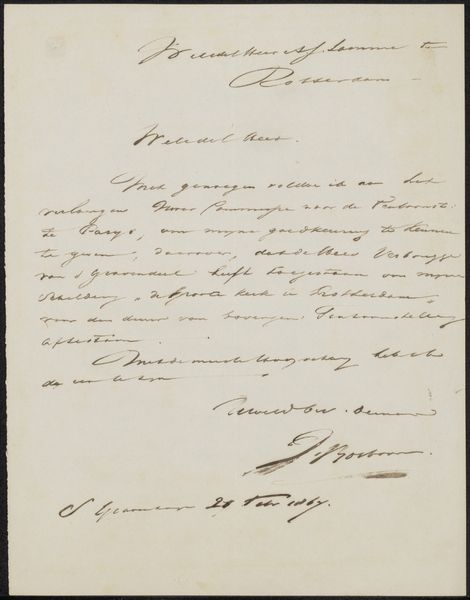 WelEdel Heer A.J. Lamme te
Rotterdam
WelEdel Heer.
Met genoegen voldoe ik aan het
verlangen Uwer Commissie voor de Tentoonst:
te Parijs, om mijne goedkeuring te kunnen
te geven, daarover, dat de Heer Verbrugge
van 's Gravendeel heeft toegestaan om mijne
Schilderij "de Groote kerk in Rotterdam"
voor den duur van bovengen: Tentoonstelling
aftestaan.
Met de meeste Hoogachting heb ik
de eer te zijn
UWEd Dw. Dienaar
J. Bosboom.
S Gravenhage 28 Feb 1867.